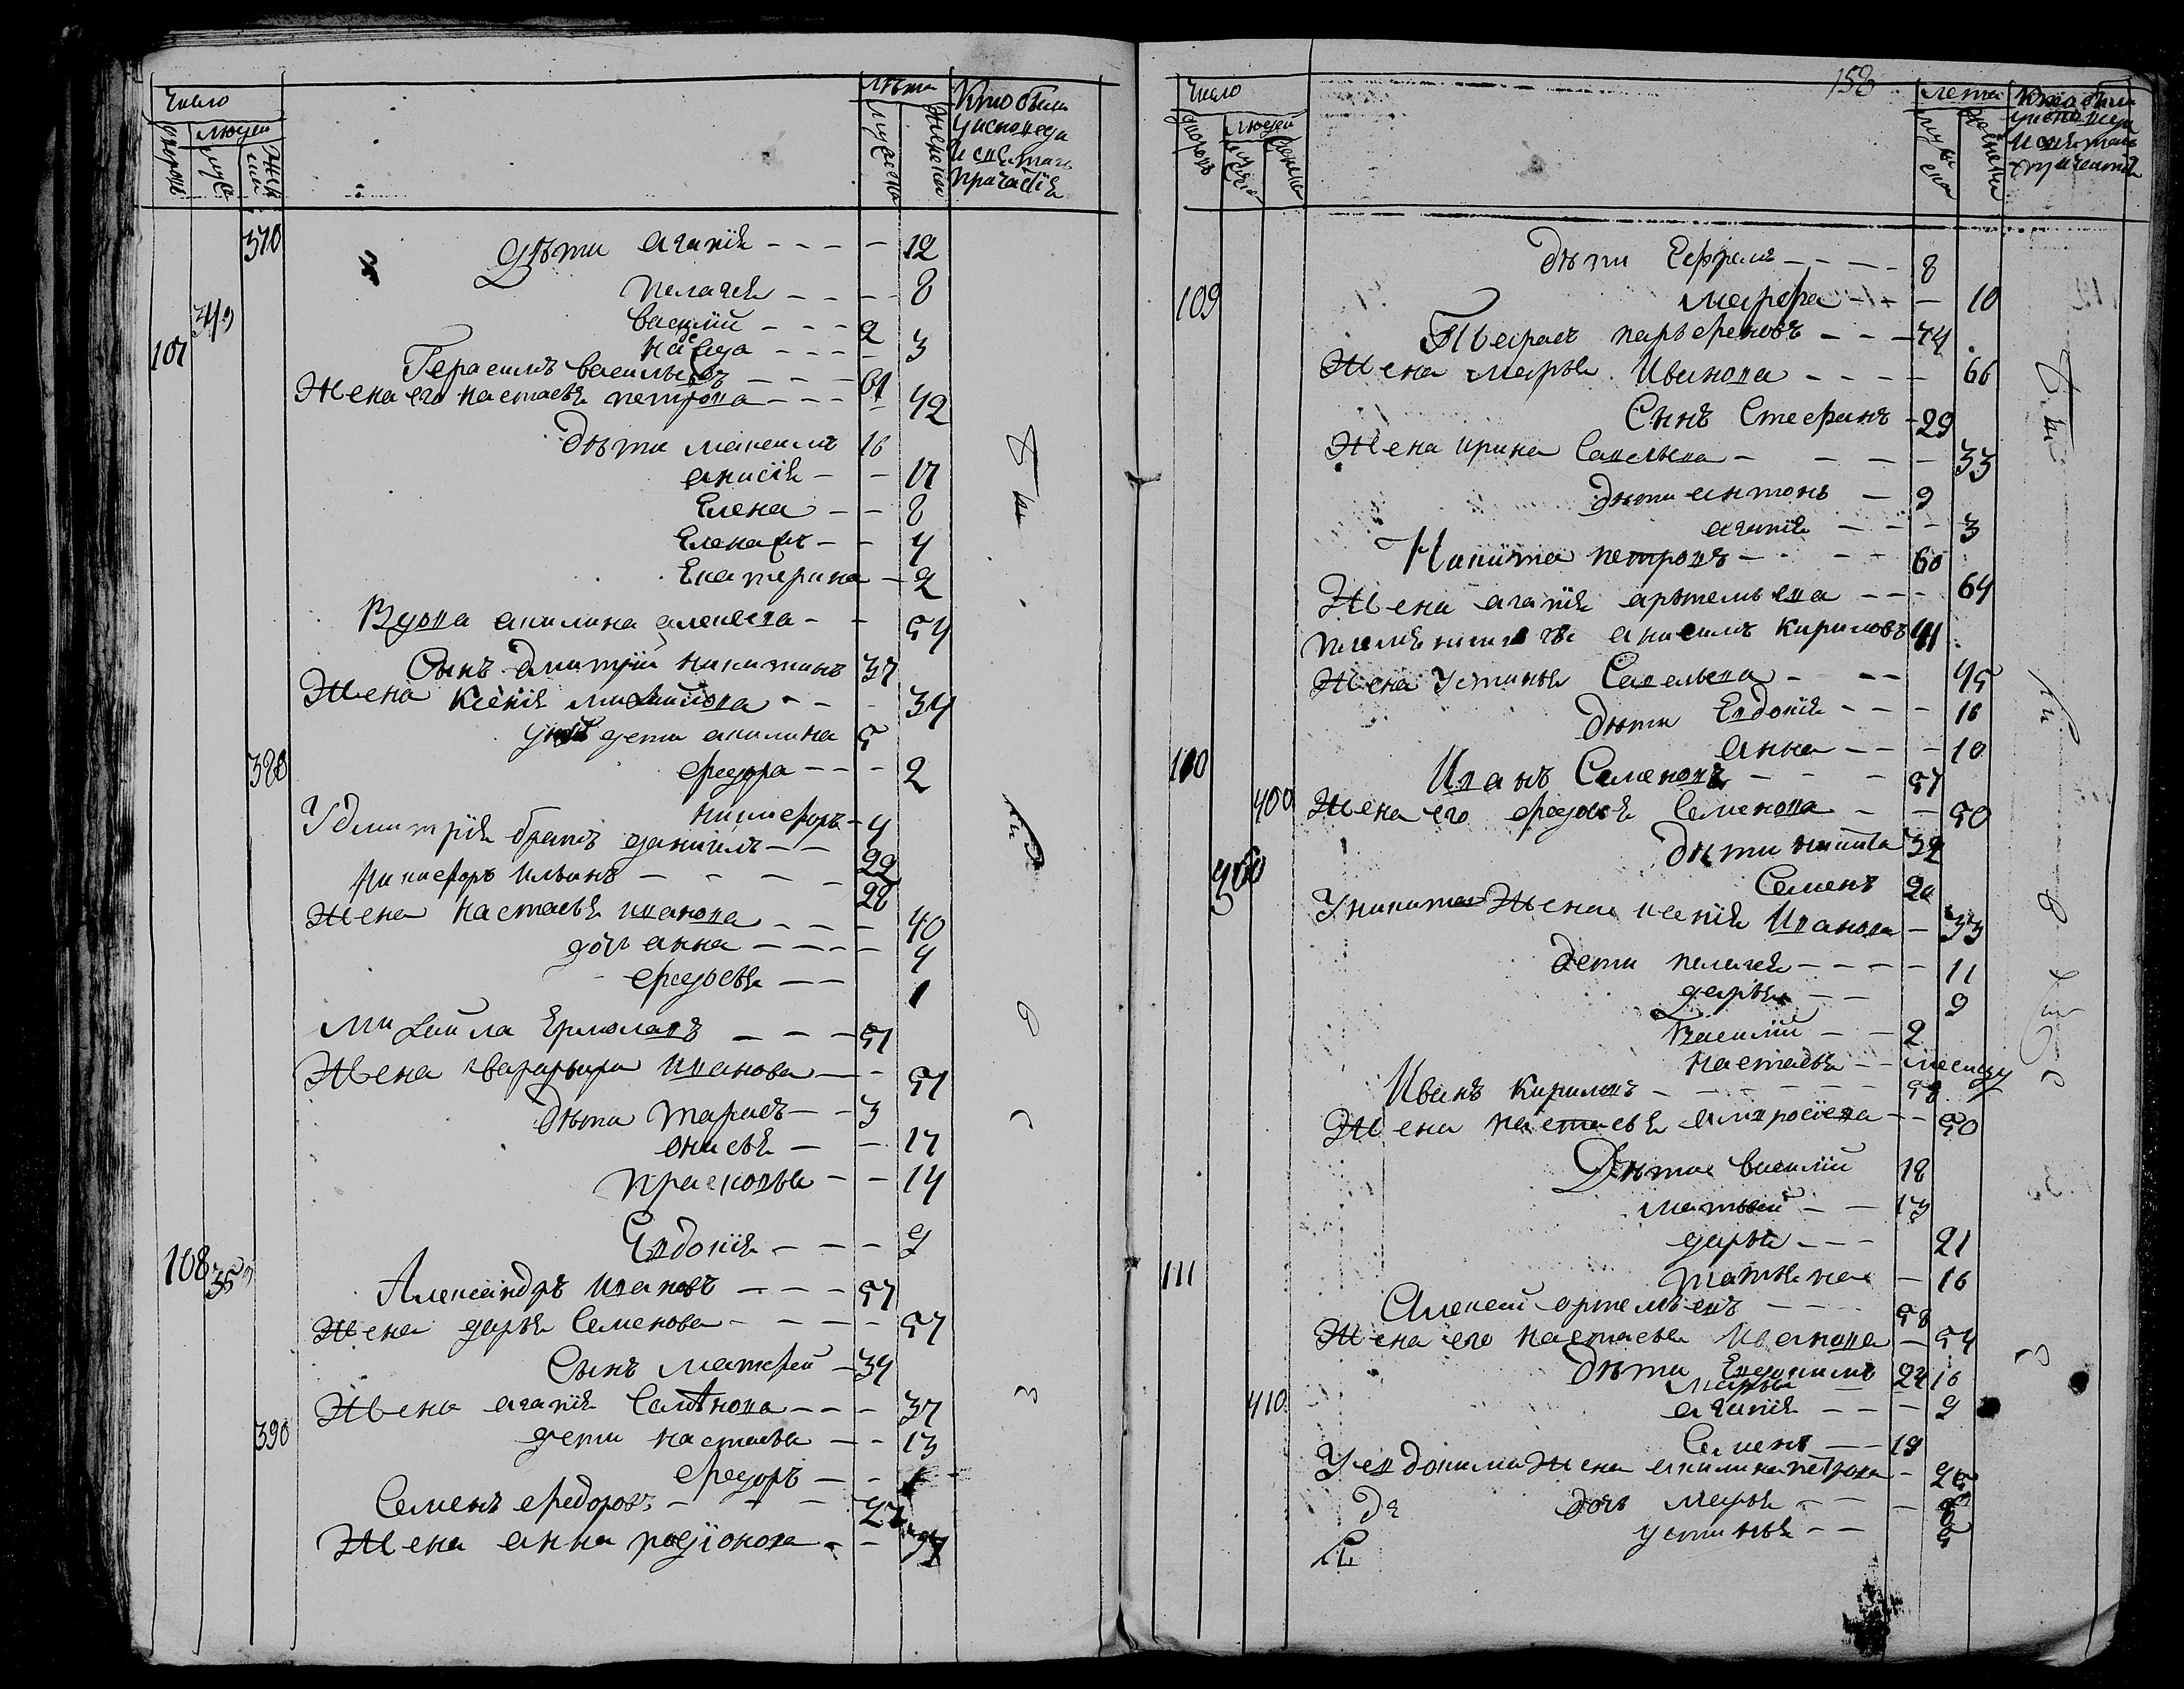 Число
дворовъ
людей
муж
жен
Лѣта
мужеска
женска
Кто были
у исповеди
и святаго
причастія
370
дѣти агапія - - - - 12
пелагея - - - - 8
340
василій - - - 2
107
надежда - - - - 3
Герасимъ васильевъ - - - 61
Жена его настасья петрова - - - - 42
дѣти максимъ 16
анисія - - 17
Елена - - 8
Елена - - 4
Екатерина - 2
Вдова акилина алексѣева - - 54
Сынъ дмитрій никитинъ 37
Жена ксенія михайлова - - - 34
у нихъ дети акилина 5
380
федора - - - 2
никифоръ - 4
У дмитрія братъ даніилъ - - 22
никифоръ ильинъ - - - - 28
Жена настасья иванова - - - 40
дочь анна - - - - 4
федосья - - 1
михайла Ермолавъ - - - 51
Жена варвара иванова - - 51
дѣти тарасъ - - 3
анисья - - 17
прасковья - - 14
Евдокія - - - 9
108
350
Александръ ивановъ - - - 57
Жена дарья Семенова - - - - 57
Сынъ матфей - 34
Жена агапія Семенова - - - 37
390
дети настасья - - 13
федоръ - - 1
Семенъ федоровъ - - - 42
Жена анна родіонова - - 37
Число
дворовъ
людей
мужеска
женска
158
лета
мужеска
женска
Кто были
у исповеди
и святаго
причастія
дѣти Ефремъ - - - - 8
109
марфа - - - 10
Тарасъ парфеновъ - - - 74
Жена марья Иванова - - - - 66
Сынъ Стефанъ - 29
Жена ирина Савельева - - - - 33
дѣти антонъ - 9
агапія - - - 3
Никита петровъ - - - - 60
Жена агапія артемьева - - - 64
племянникъ анисимъ кириловъ 41
Жена Устинья Савельева - - - 45
дѣти Евдокія - - - 16
анна - - - 10
110
Иванъ Семеновъ - - - 57
400
Жена его федосья Семенова - - 50
дѣти никита 32
360
Семенъ 20
У никиты Жена ксенія Иванова - 33
дети пелагея - - - - 11
дарья - - 9
Василій - - 2
настасья - - месяцу
Иванъ Кириловъ - - - - - - 58
Жена настасья амвросіева - - 50
Дѣти василій 18
матвей - - 13
дарья - - - 21
111
татьяна - 16
Алексей артемьевъ - - - 58
Жена его настасья Иванова - 54
дѣти Евдокимъ 22
марья - 16
410
агапія - - - 9
Семенъ - - 19
У евдокима Жена акилина петрова - 25
дочь марья - - - 8
устинья - - 5